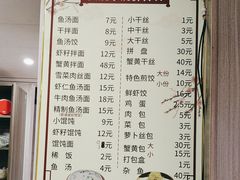 鱼汤面 7元
干拌面 8元
鱼汤饺 9元
虾籽拌面 8元
蟹黄拌面 30元
雪菜肉丝面 12元
虾仁鱼汤面 15元
牛肉鱼汤面 18元
精制鱼汤面 10元
小馄饨 9元
虾籽馄饨 9元
馄饨面 8元
稀饭 2元
鱼汤
小干丝 1元
中干丝 3元
大干丝 5元
拼盘 40元
蟹黄干丝 30元
特色煎饺 大份 14元
小份 10元
鲜虾饺 16元
鸡蛋 2元
肉包 2元
菜包 2元
萝卜丝包 2元
蟹黄包 大
小
打包盒 1元
杂鱼 40元